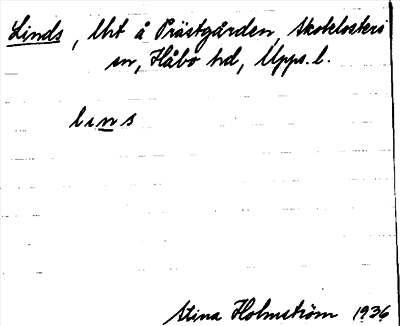 Linds, Uht å Prästgården, Skoklosters
sn, Håbo hd, Upps. l.
lins
Stina Holmström 1936